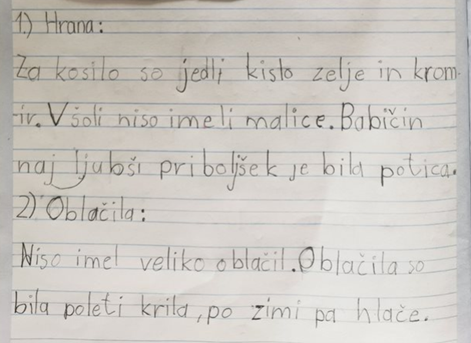 1.) Hrana:
Za kosilo so jedli kislo zelje in krom-
ir. V šoli niso imeli malice. Babičin
naj ljubši priboljšek je bila potica.
2) Oblačila:
Niso imel veliko oblačil. Oblačila so
bila poleti krila, po zimi pa hlače.